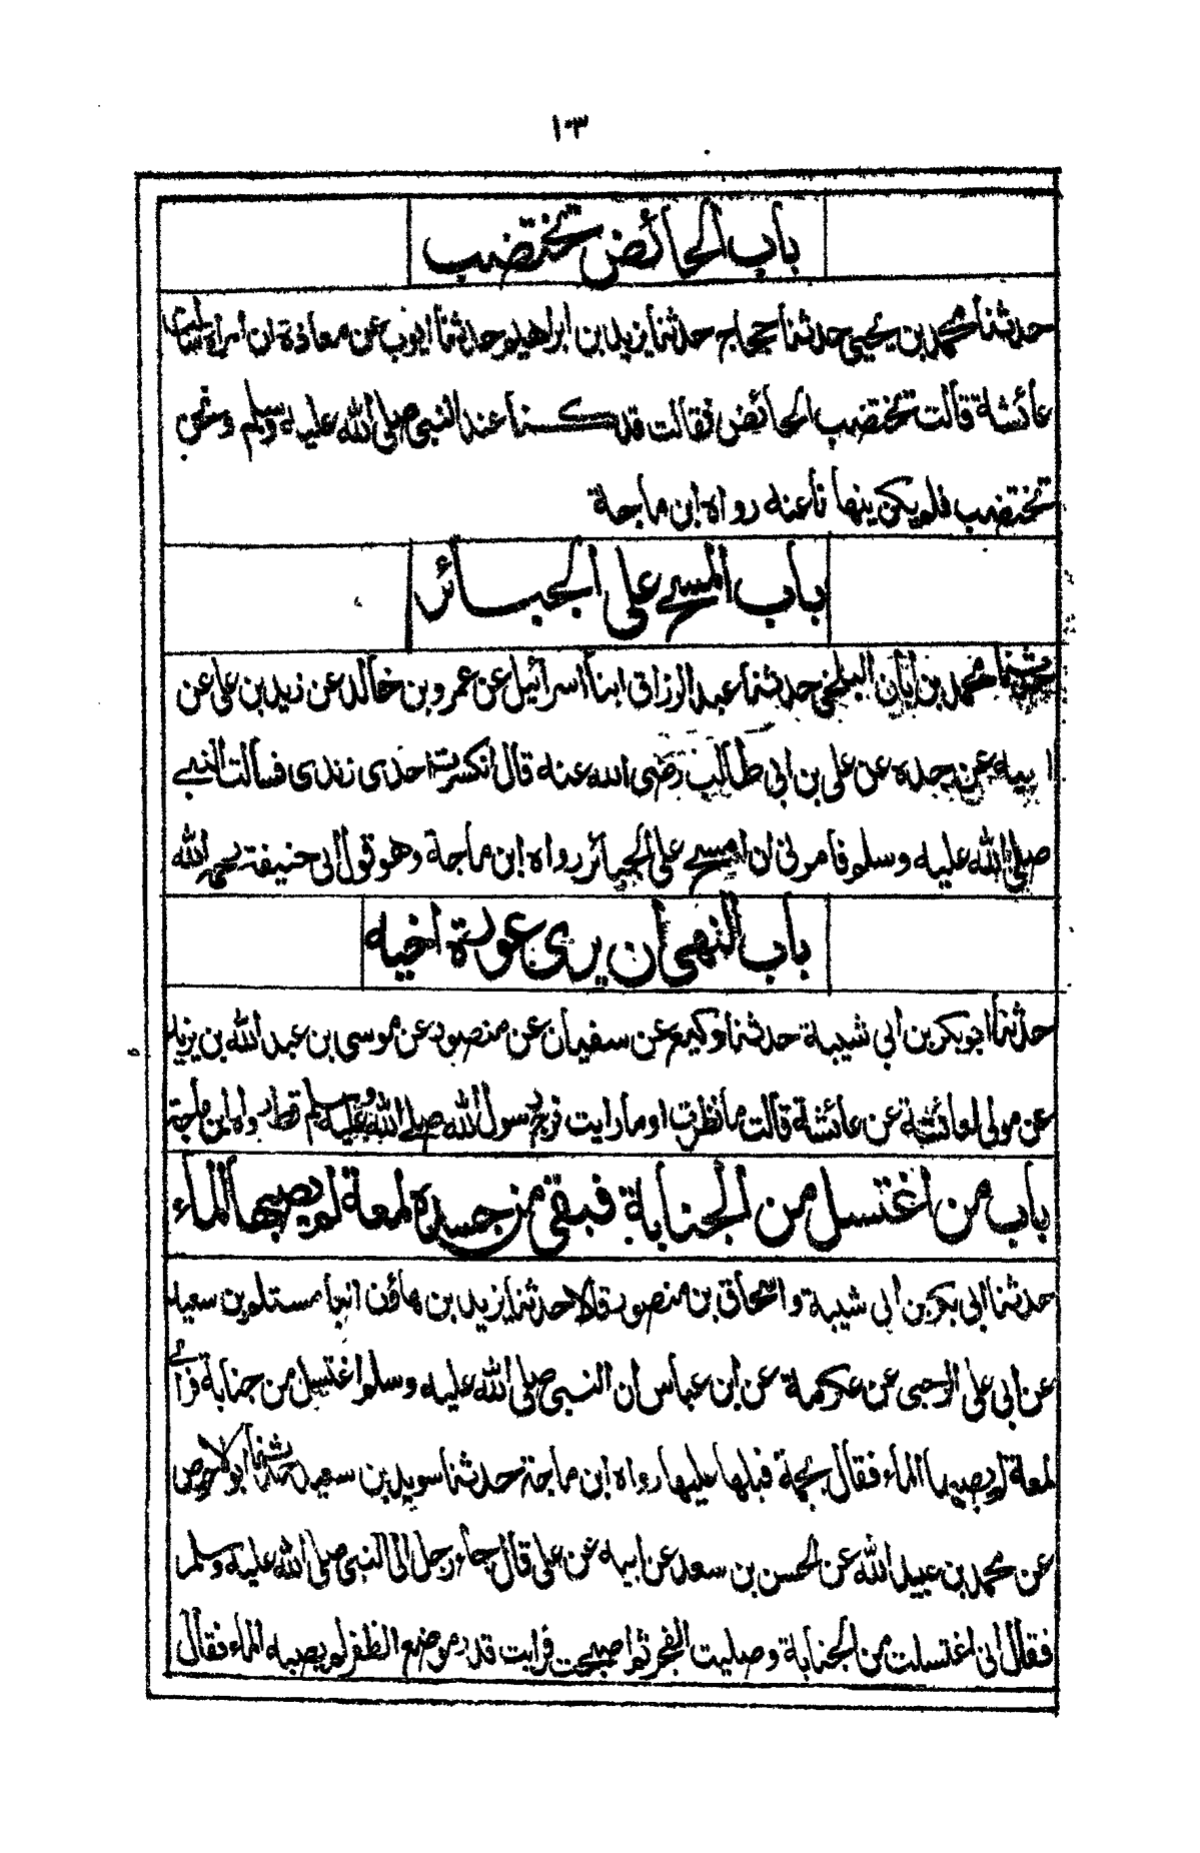 ١٠٣
باب الحائض تختضب
حدثنا محمد بن يحيى حدثنا حجاج حدثنا يزيد بن ابراهيم حدثنا ايوب عن معاذة ان امراة سالت
عائشة قالت تختضب الحائض فقالت قد كنا عند النبي صلى الله عليه وسلم ونحن
نختضب فلم يكن ينهانا عنه رواه ابن ماجة
باب المسح على الجبائر
حدثنا محمد بن ابان البلخي حدثنا عبد الرزاق انبأ اسرائيل عن عمرو بن خالد عن زيد بن على عن
ابيه عن جده عن على بن ابي طالب رضى الله عنه قال انكسرت احدى زندى فسالت النبي
صلى الله عليه وسلم فامرنى ان امسح على الجبائر رواه ابن ماجة وهو قول ابى حنيفة رحمه الله
باب النهى ان يرى عورة اخيه
حدثنا ابو بكر بن ابي شيبة حدثنا وكيع عن سفيان عن منصور عن موسى بن عبد الله بن يزيد
عن مولى لعائشة عن عائشة قالت ما نظرت او ما رايت فرج رسول الله صلى الله عليه وسلم قط رواه ابن ماجة
باب من اغتسل من الجنابة فبقى من جسده لمعة لم يصبها الماء
حدثنا ابى بكر بن ابى شيبة واسحاق بن منصور قالا حدثنا يزيد بن هاؤن انبأ مستلم بن سعيد
عن ابى على الرحبى عن عكرمة عن ابن عباس ان النبي صلى الله عليه وسلم اغتسل من جنابة فرائ
لمعة لم يصبها الماء فقال بجمة فبلها عليها رواه ابن ماجة حدثنا سويد بن سعيد حدثنا ابو الاحوص
عن محمد بن عبيد الله عن الحسن بن سعد عن ابيه عن على قال جاء رجل الى النبي صلى الله عليه وسلم
فقال انى اغتسلت من الجنابة وصليت الفجر ثم اصبحت فرايت قدر موضع الظفر لم يصبه الماء فقال